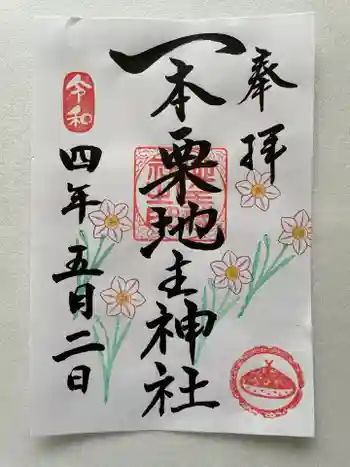 奉拝
一本栗地主神社
令和
四年五月二日